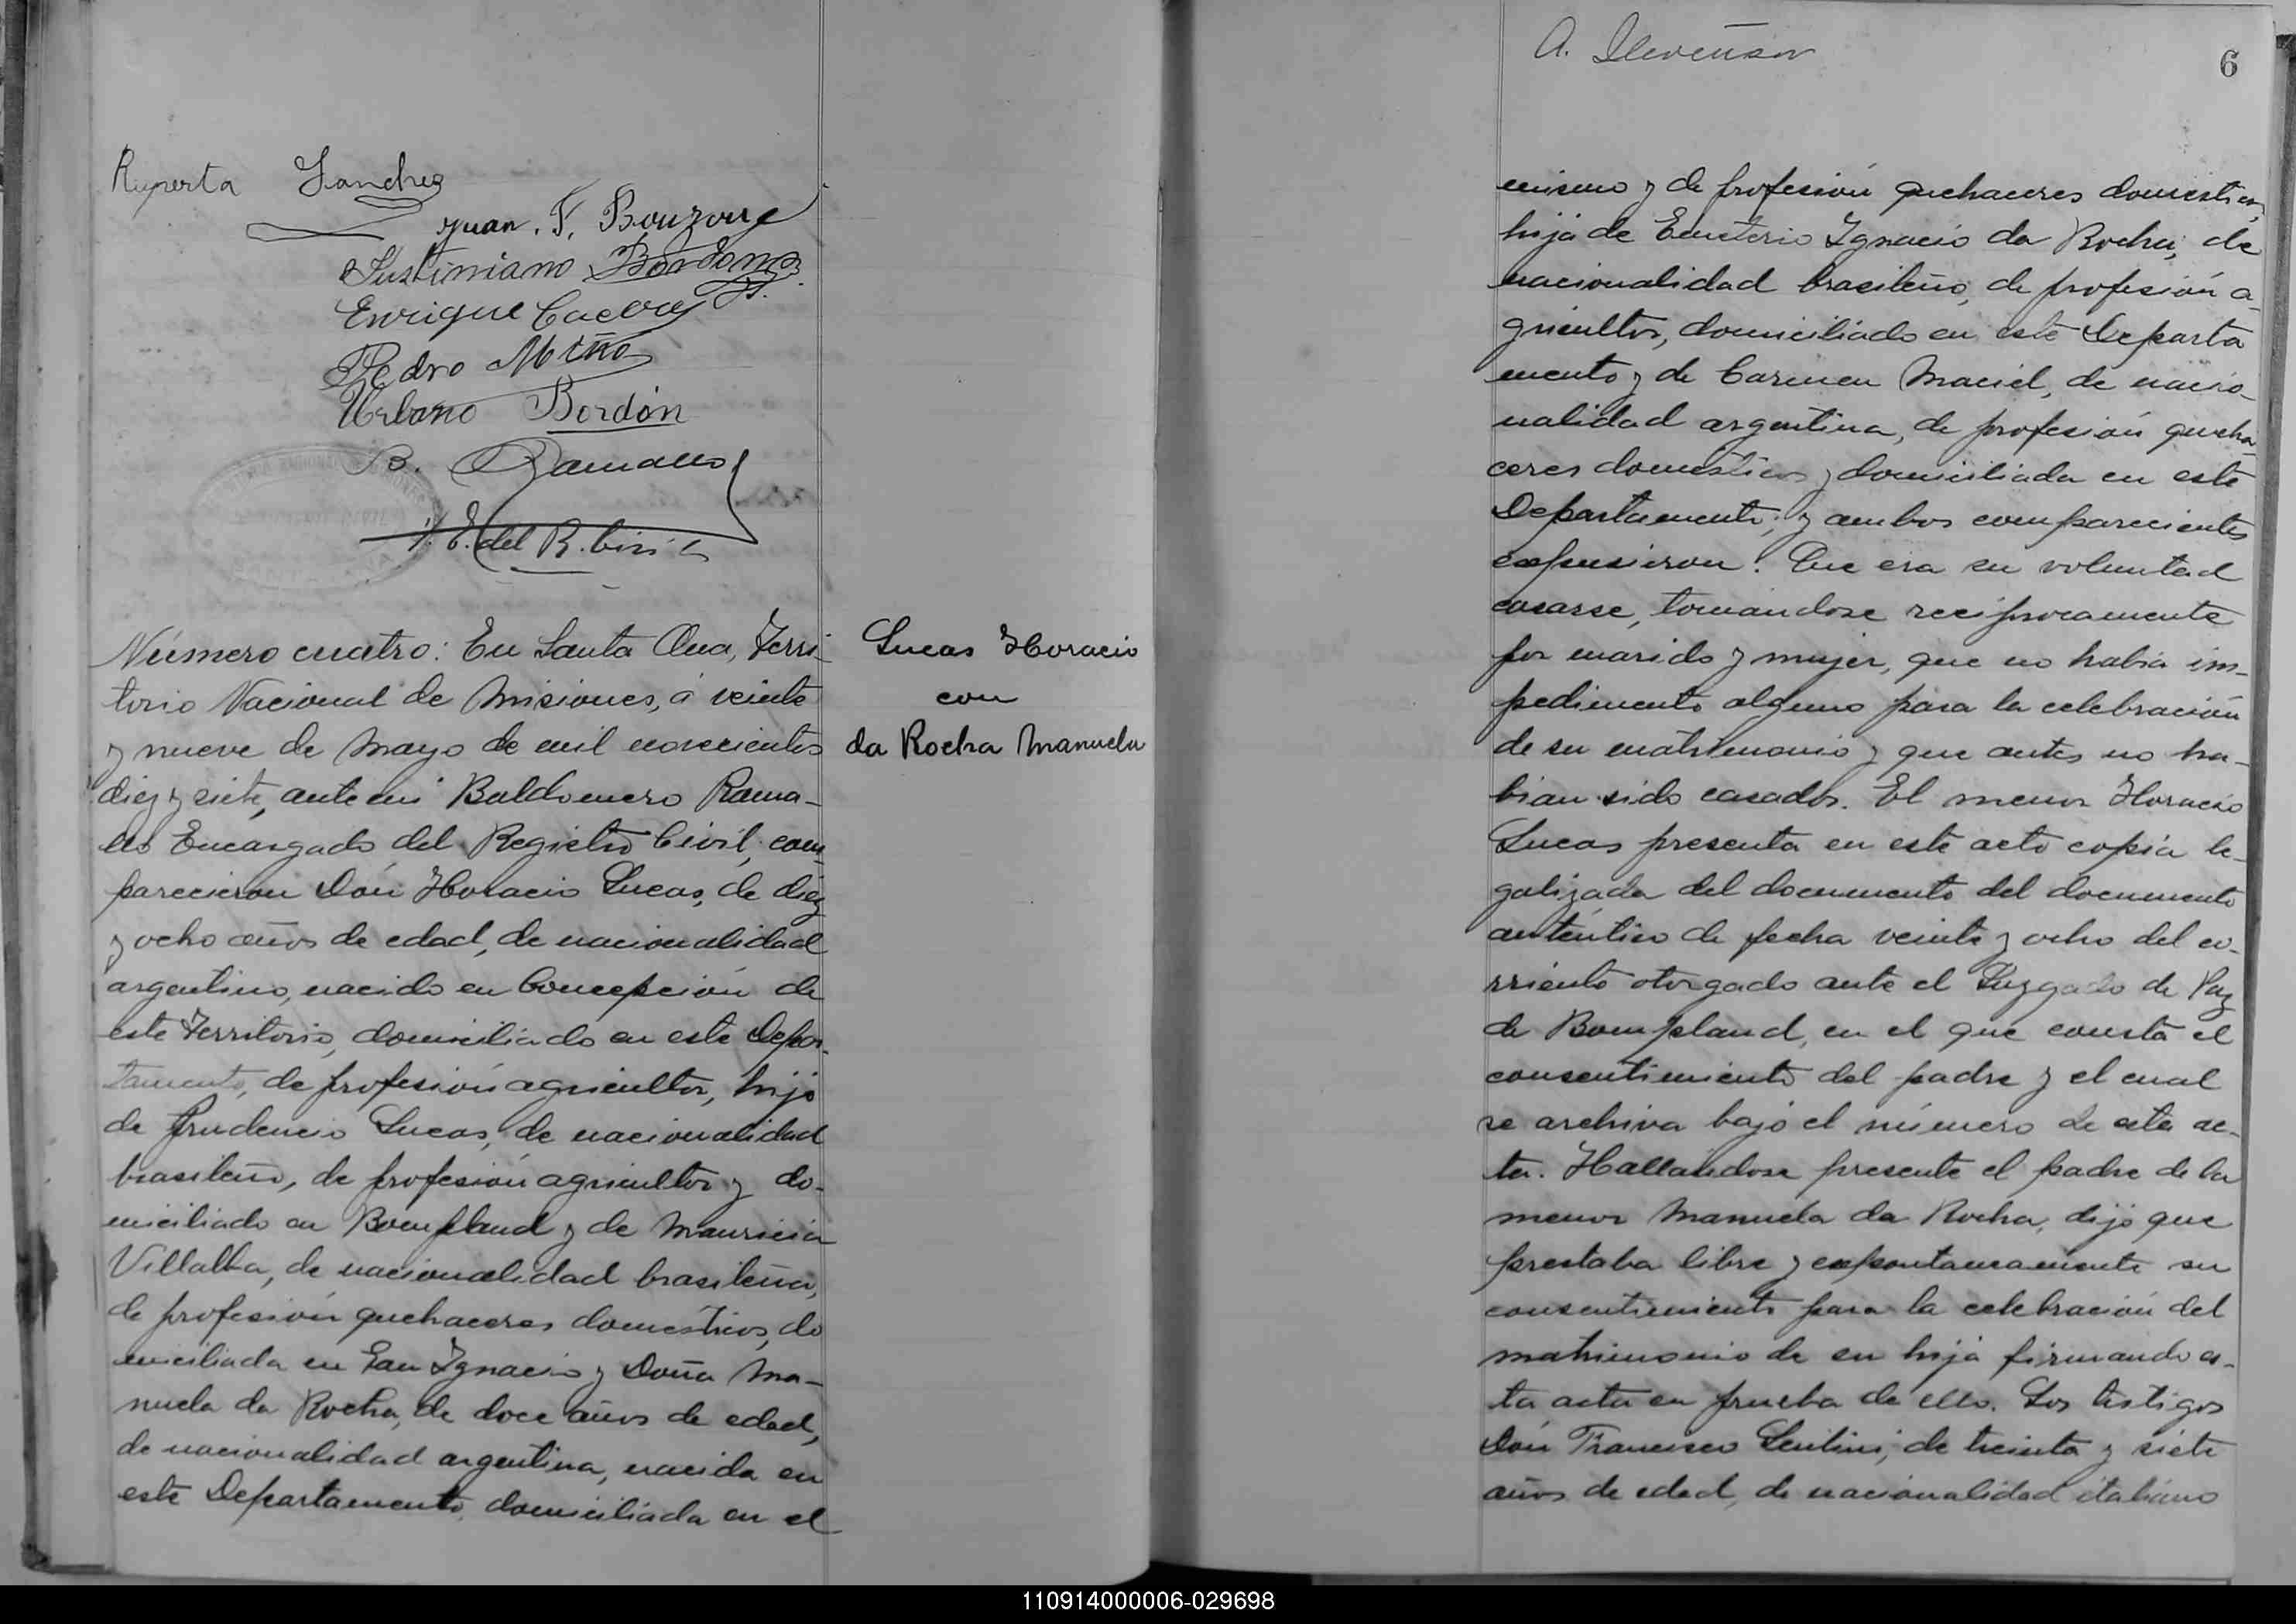 Ruperta Sanchez
Juan. F. Bouzon
Justiniano Bordon
Enrique
Pedro Miño
Urbano Bordón
B. Ramallo
E. del R. Civil
Número cuatro: En Santa Ana, Terri-
torio Nacional de Misiones, á veinte
y nueve de Mayo de mil novecientos
diez y siete, ante mi Baldomero Rama-
llo Encargado del Registro Civil, com-
parecieron Don Horacio Lucas, de diez
y ocho años de edad, de nacionalidad
argentino, nacido en Concepción de
este Territorio, domiciliado en este Depar-
tamento, de profesión agricultor, hijo
de Prudencio Lucas, de nacionalidad
brasileño, de profesión agricultor y do-
miciliado en Bompland y de Mauricia
Villalba, de nacionalidad brasileña,
de profesión quehaceres domésticos, do
miciliada en San Ignacio y Doña Ma-
nuela da Rocha, de doce años de edad,
de nacionalidad argentina, nacida en
este Departamento, domiciliada en el
Lucas Horacio
con
da Rocha Manuela
A.
6
mismo y de profesión quehaceres domesticos,
hija de Emeterio Ignacio da Rocha, de
nacionalidad brasileño, de profesión a-
gricultor, domiciliado en este Departa
mento y de Carmen Maciel, de nacio-
nalidad argentina, de profesión queha
ceres domésticos y domiciliada en este
Departamento; y ambos comparecientes
expusieron: Que era su voluntad
casarse, tomandose reciprocamente
por marido y mujer, que no habia im-
pedimento alguno para la celebración
de su matrimonio y que antes no ha-
bian sido casados. El menor Horacio
Lucas presenta en este acto copia le-
galizada del documento del documento
auténtico de fecha veinte y ocho del co-
rriente otorgado ante el Juzgado de Paz
de Bompland, en el que consta el
consentimiento del padre y el cual
se archiva bajo el número de esta ac-
ta. Hallandose presente el padre de la
menor Manuela da Rocha, dijo que
prestaba libre y expontaneamente su
consentimiento para la celebración del
matrimonio de su hija firmando es-
ta acta en prueba de ello. Los testigos
Don Francisco Lentini, de treinta y siete
años de edad, de nacionalidad italiano
110914000006-029698